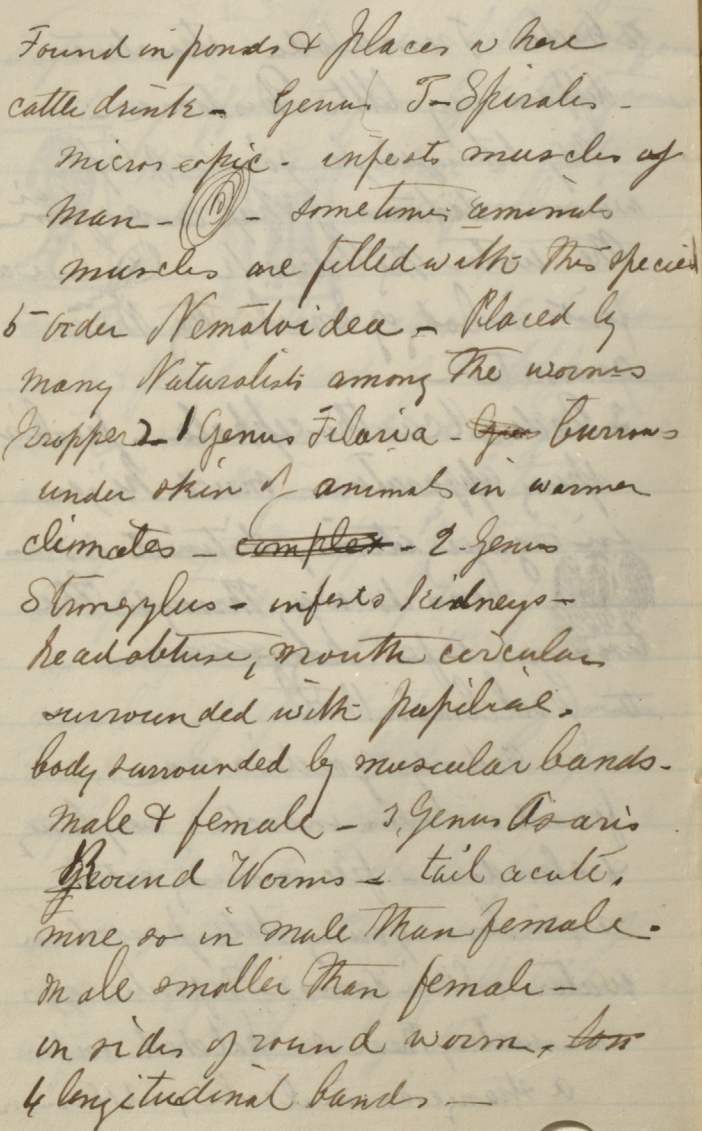 Found in ponds & places where
cattle drink - Genus T-Spiralis -
microscopic - infests muscles of
man - - sometimes animals
muscles are filled with this species
5 order Nematoidea - Placed by
many Naturalists among the worms
proper 1 Genus Filaria - Gen burrows
under skin of animals in warmer
climates - complex - 2 Genus
Strongylus - infests kidneys -
head obtuse, mouth circular
surrounded with papiliae.
body surrounded by muscular bands -
male & female - 3, Genus Asaris
Round Worms - tail acute,
more so in male than female.
male smaller than female -
on sides of round worm,
4 longitudinal bands -